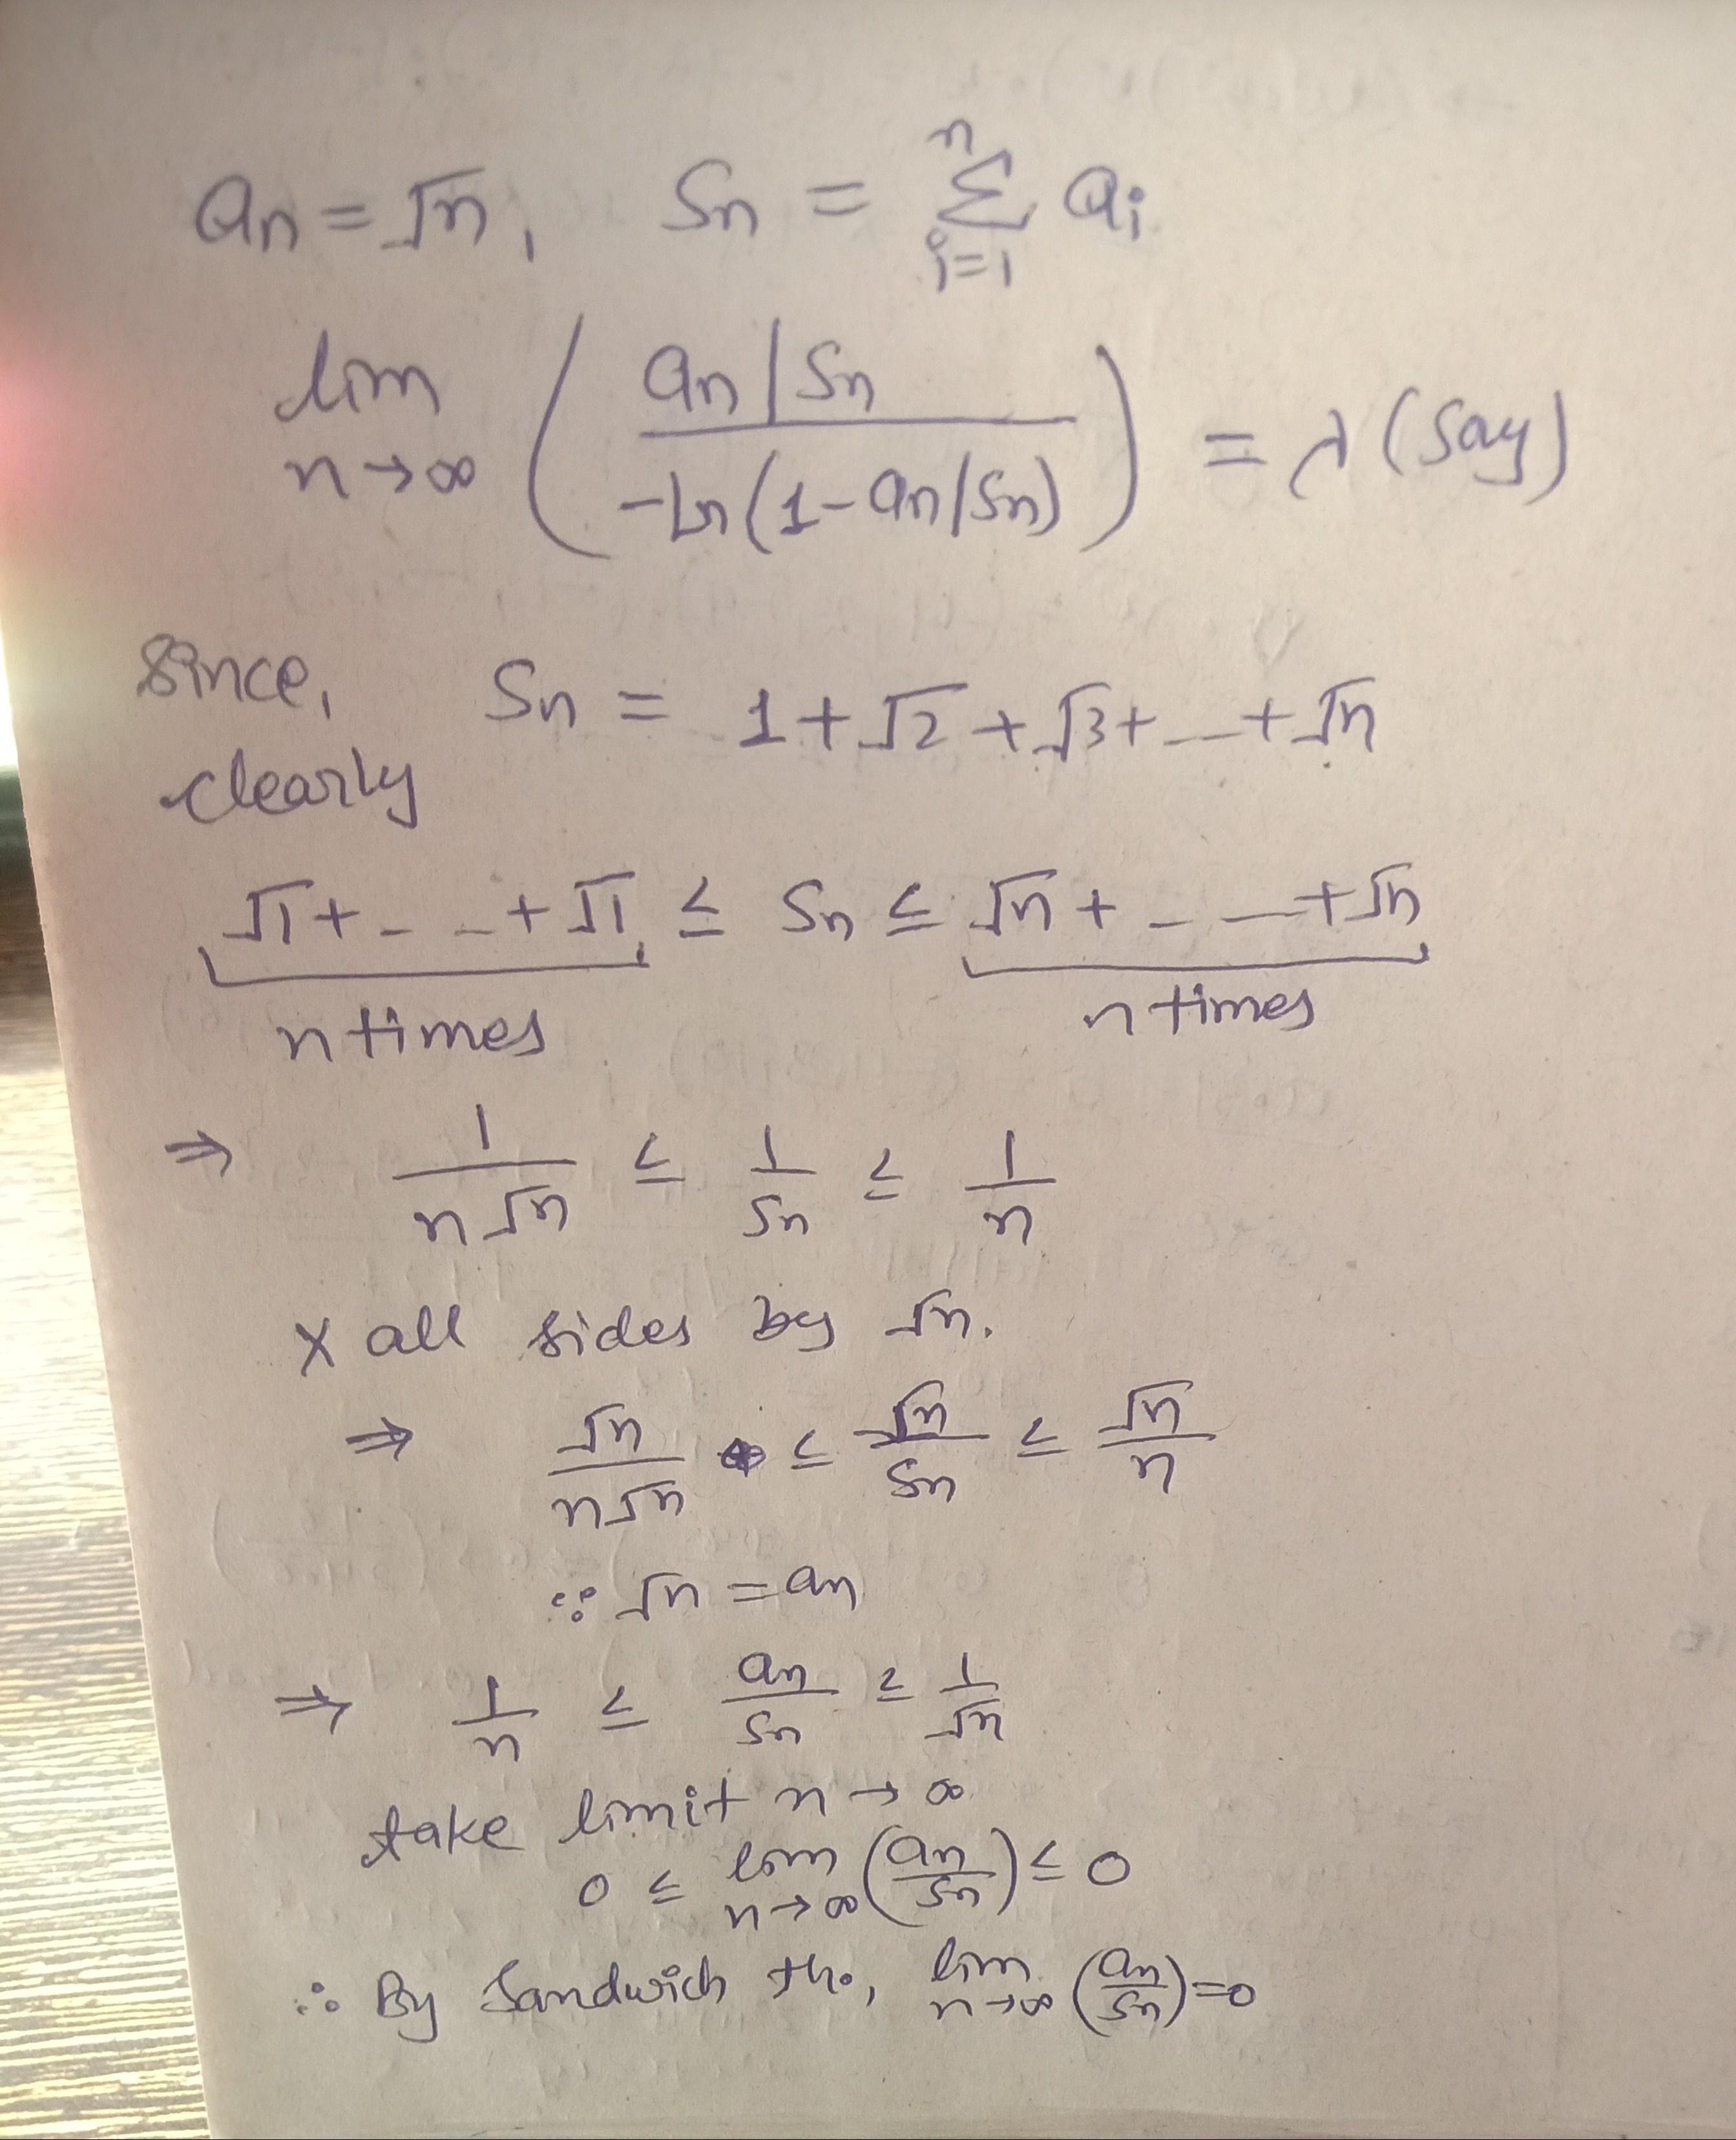 an = √n, Sn = n Σ i=1 ai
lim n→∞ ( an/Sn / -ln(1-an/Sn) ) = λ (say)
Since, Sn = 1 + √2 + √3 + --- + √n
clearly
√1 + - - - + √1 ≤ Sn ≤ √n + - - - + √n
n times n times
⇒ 1/n√n ≤ 1/Sn ≤ 1/n
x all sides by √n.
⇒ √n/n√n ≤ √n/Sn ≤ √n/n
∵ √n = an
⇒ 1/n ≤ an/Sn ≤ 1/√n
take limit n→∞
0 ≤ lim n→∞ (an/Sn) ≤ 0
∴ By Sandwich th., lim n→∞ (an/Sn) = 0